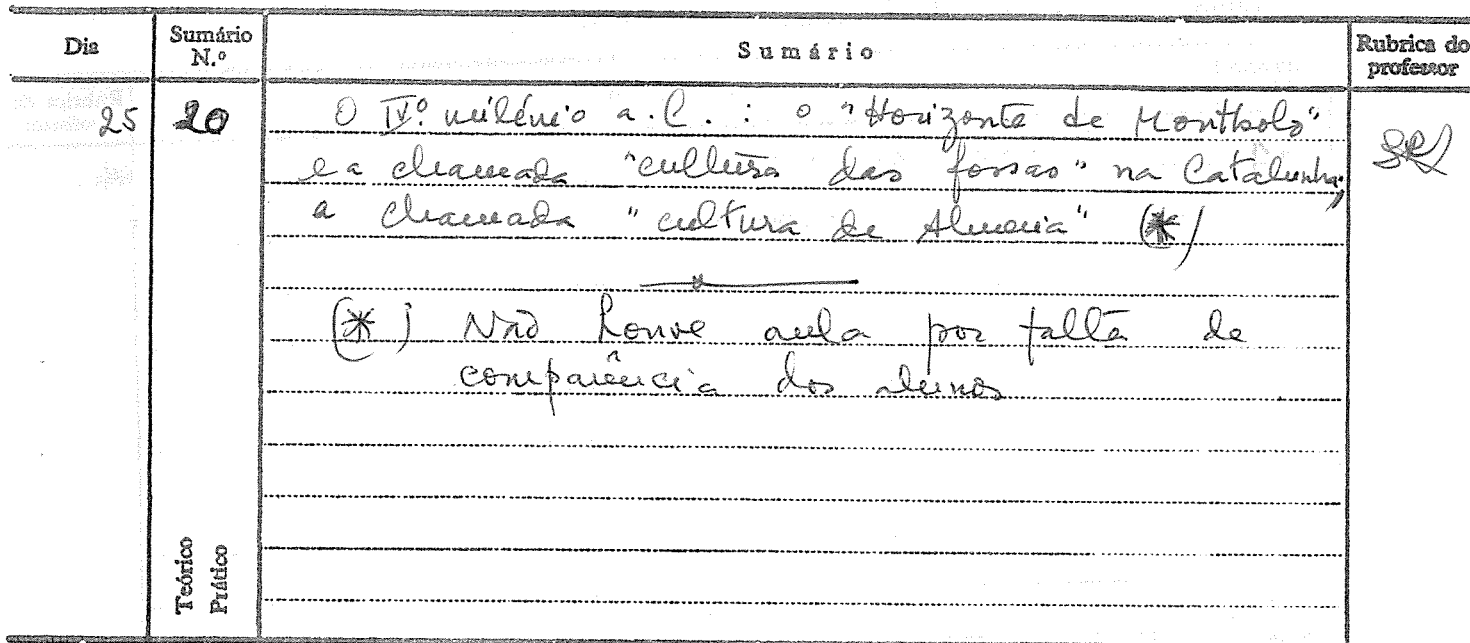 Dia
Sumário
N.º
Sumário
Rubrica do
professor
25
20
O IVº milénio a.C.: o "Horizonte de Montbolo"
e a chamada "cultura das fossas" na Catalunha;
a chamada "cultura de Almeria" (*)
(*) Não houve aula por falta de
comparência dos alunos
Teórico
Prático